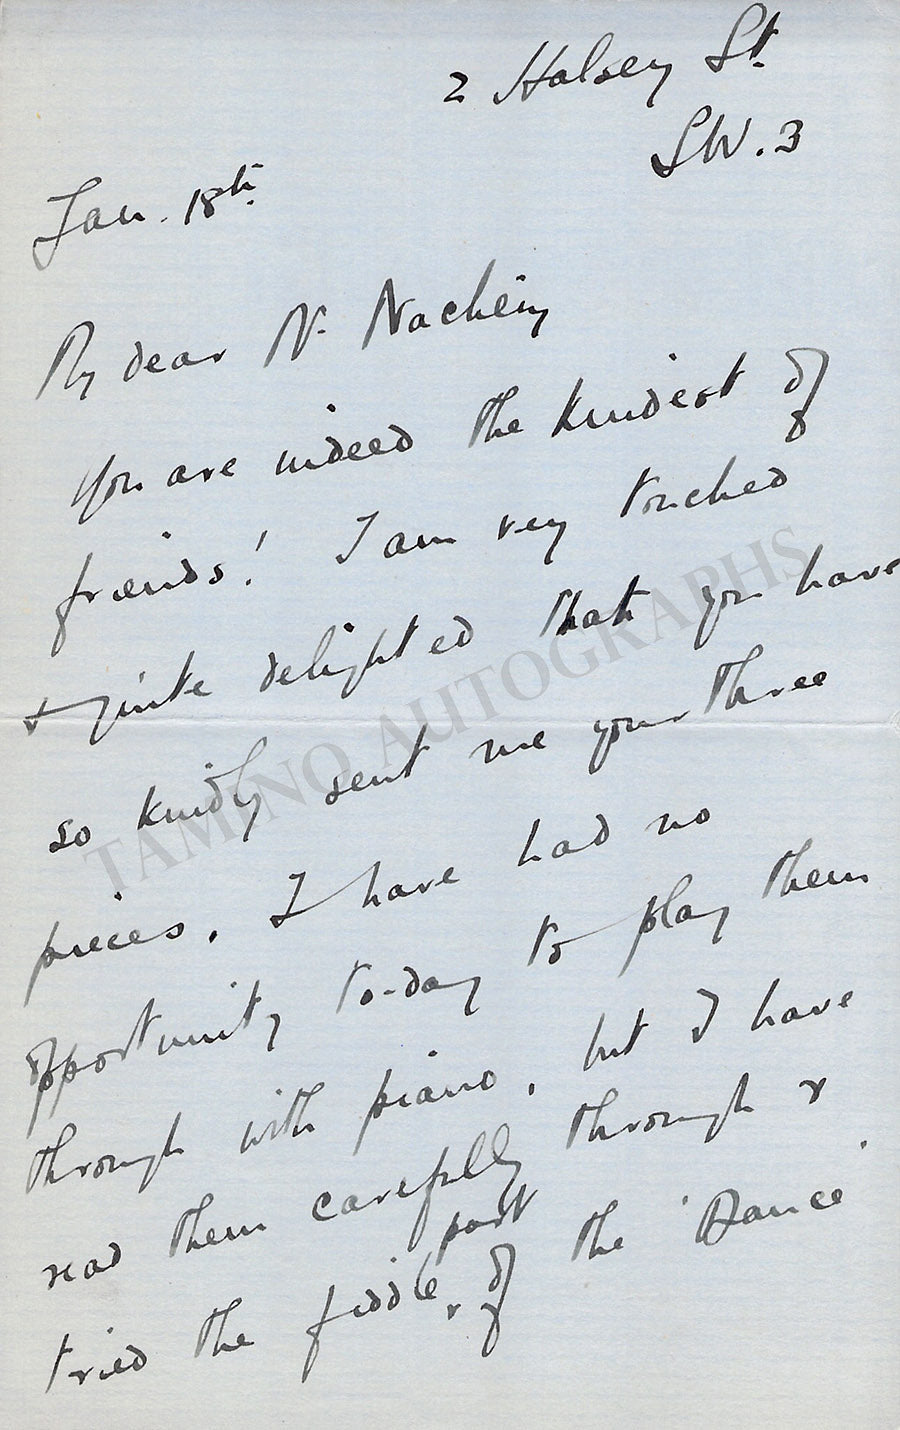 2 Halsey St.
SW. 3
Jan. 18th
My dear Mr. Nachèz
You are indeed the kindest of
friends! I am very touched
& quite delighted that you have
so kindly sent me your three
pieces. I have had no
opportunity to-day to play them
through with piano, but I have
read them carefully through &
part
tried the fiddle of the 'Dance'
TAMINO AUTOGRAPHS